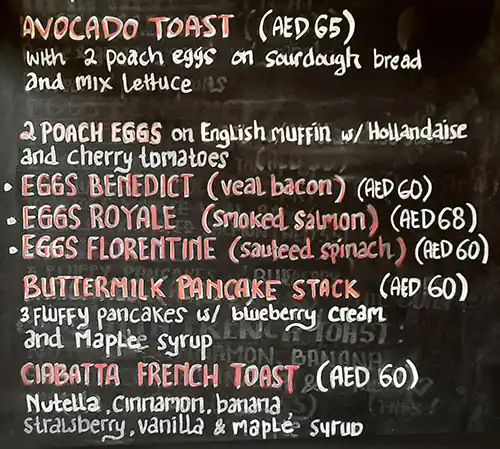 AVOCADO TOAST (AED 65)
with 2 poach eggs on sourdough bread
and mix lettuce
2 POACH EGGS on English muffin w/ Hollandaise
and cherry tomatoes
• EGGS BENEDICT (veal bacon) (AED 60)
• EGGS ROYALE (smoked salmon) (AED 68)
• EGGS FLORENTINE (sauteed spinach) (AED 60)
BUTTERMILK PANCAKE STACK (AED 60)
3 fluffy pancakes w/ blueberry cream
and Maple syrup
CIABATTA FRENCH TOAST (AED 60)
Nutella, cinnamon, banana
stralsberry, vanilla & maple syrup